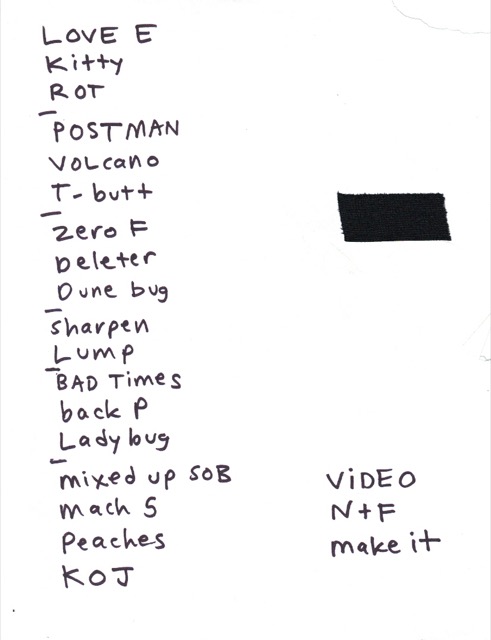 LOVE E
Kitty
ROT
POSTMAN
VOLcano
T-butt
Zero F
Deleter
Dune bug
sharpen
Lump
BAD Times
back P
Lady bug
mixed up SOB
mach 5
Peaches
KOJ
ViDEO
N+F
make it